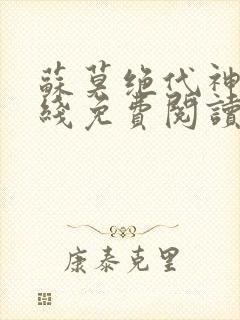 蘇莫绝代神
綫免費閱讀
康泰克里